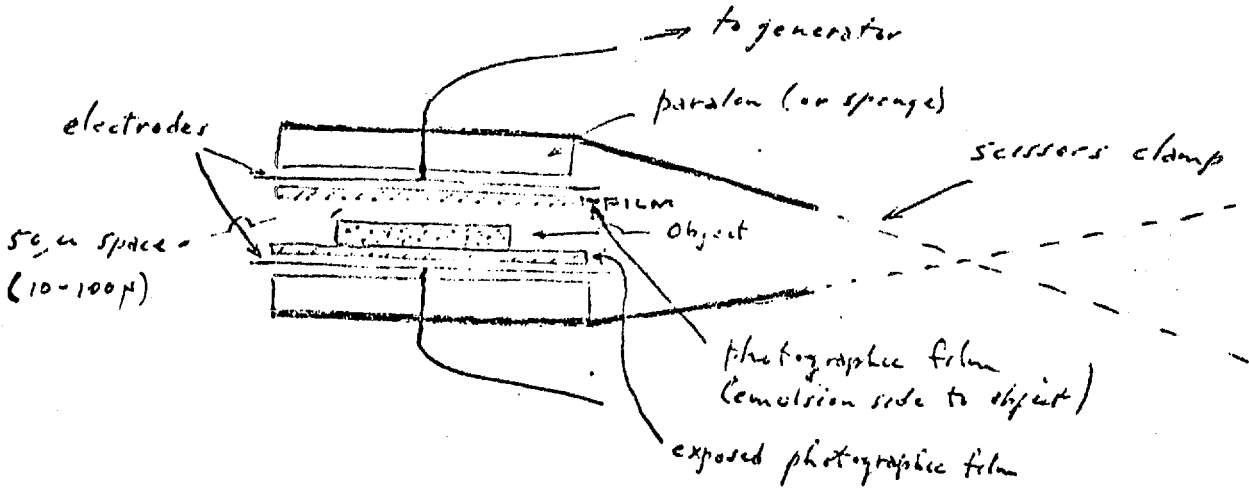 to generator
paralon (or sponge)
electrodes
scissors clamp
FILM
Object
space
(10-100μ)
photographic film
(emulsion side to object)
exposed photographic film